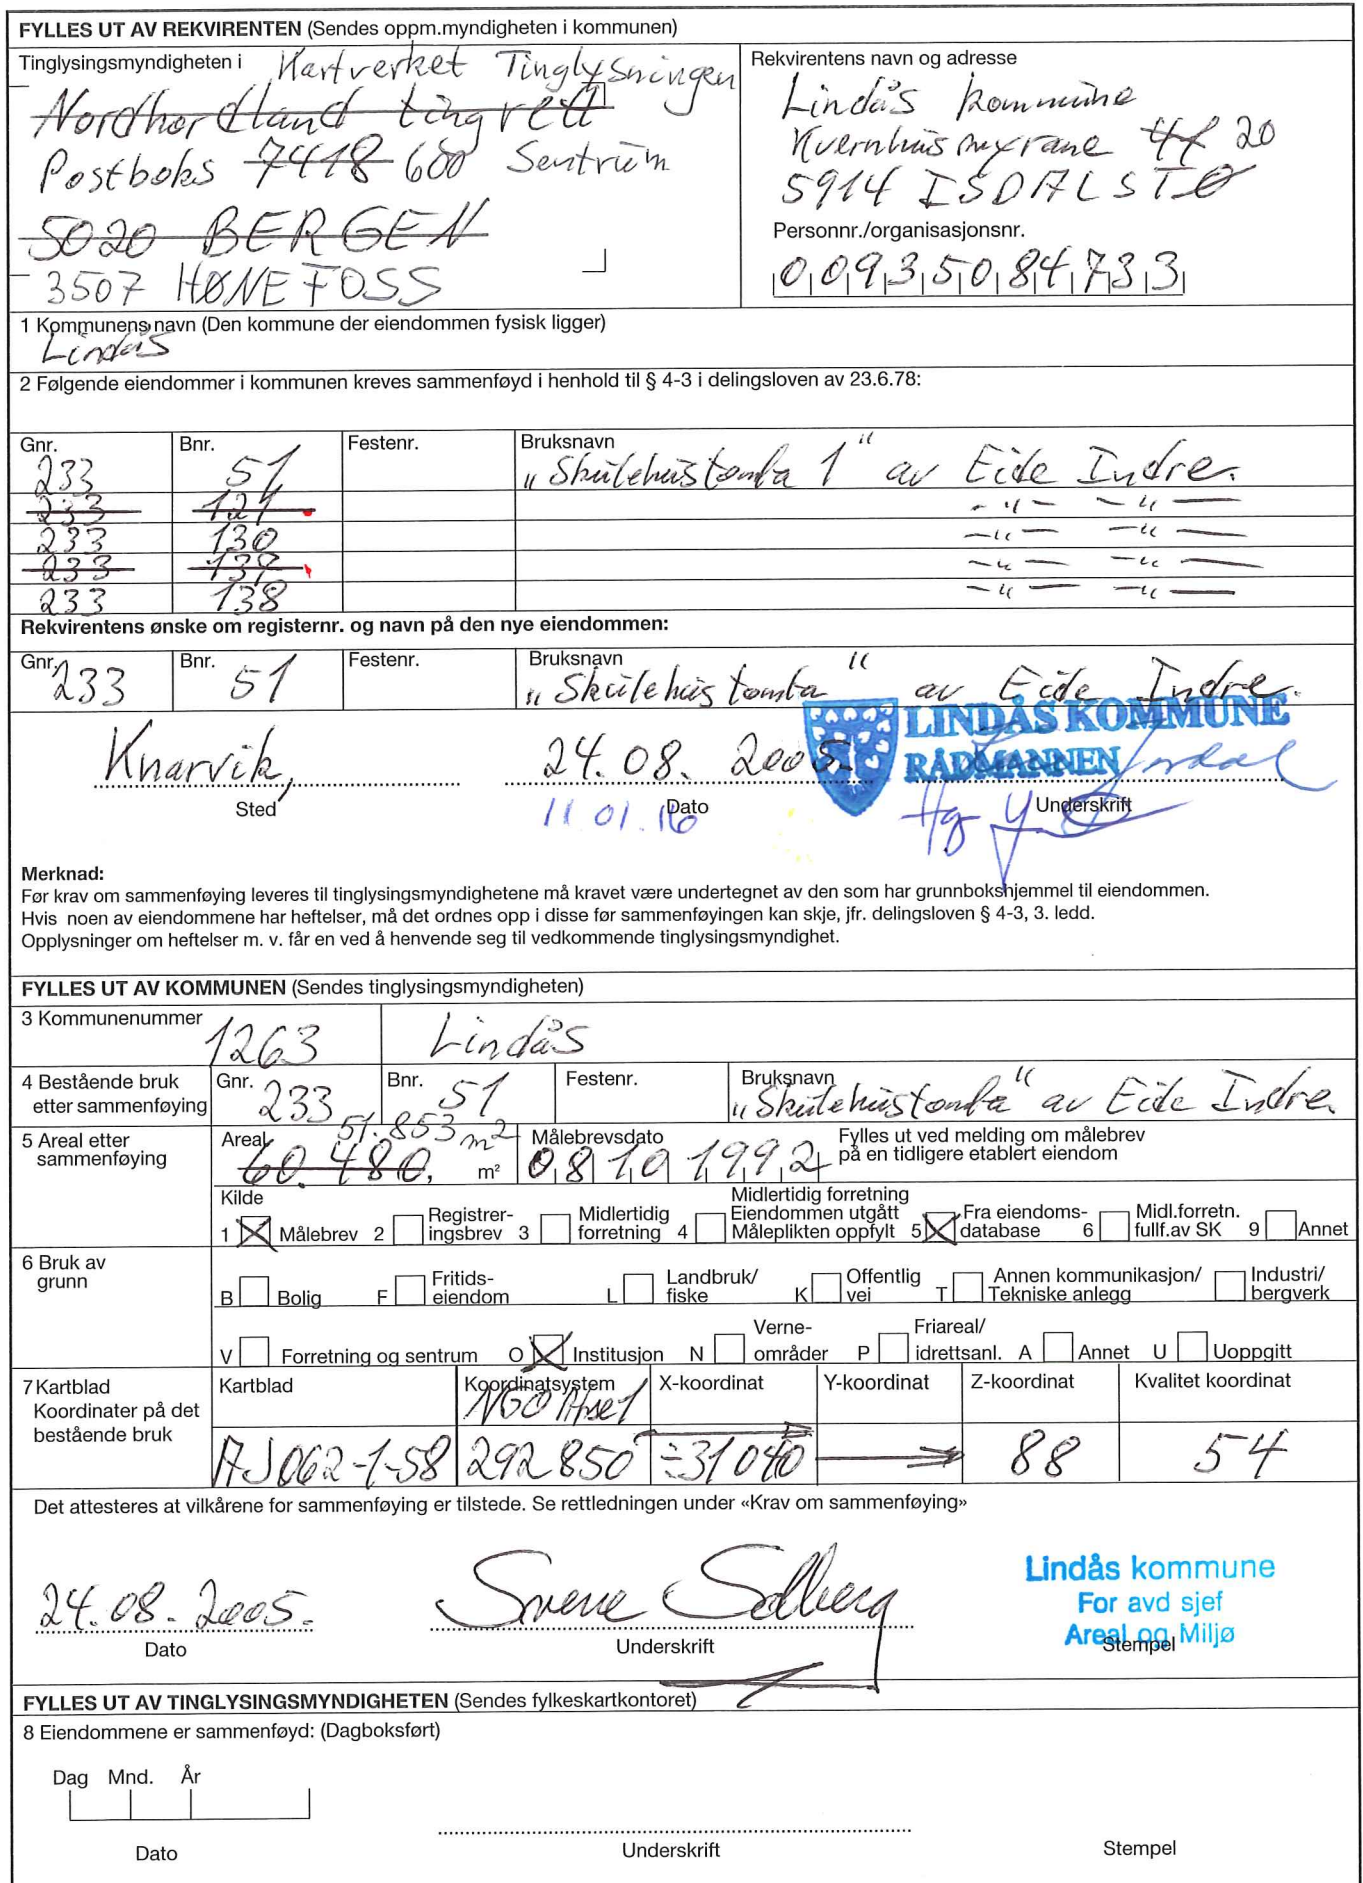 FYLLES UT AV REKVIRENTEN (Sendes oppm.myndigheten i kommunen)
Tinglysingsmyndigheten i Kartverket Tinglysningen
Nordhordland tingrett
Postboks 7418 600 Sentrum
5020 BERGEN
3507 HØNEFOSS
Rekvirentens navn og adresse
Lindås kommune
Kvernhusmyrane 20
5914 ISDALSTØ
Personnr./organisasjonsnr.
00935084733
1 Kommunens navn (Den kommune der eiendommen fysisk ligger)
Lindås
2 Følgende eiendommer i kommunen kreves sammenføyd i henhold til § 4-3 i delingsloven av 23.6.78:
Gnr. Bnr. Festenr. Bruksnavn
233 51 „Skulehustomta 1" av Eide Indre.
233 121 -"- -"-
233 130 -"- -"-
233 -"- -"-
233 138 -"- -"-
Rekvirentens ønske om registernr. og navn på den nye eiendommen:
Gnr. Bnr. Festenr. Bruksnavn
233 51 „Skulehustomta" av Eide Indre.
LINDÅS KOMMUNE
RÅDMANNEN
Knarvik, 24.08.2005.
Sted Dato Underskrift
11.01.16
Merknad:
Før krav om sammenføying leveres til tinglysingsmyndighetene må kravet være undertegnet av den som har grunnbokshjemmel til eiendommen.
Hvis noen av eiendommene har heftelser, må det ordnes opp i disse før sammenføyingen kan skje, jfr. delingsloven § 4-3, 3. ledd.
Opplysninger om heftelser m. v. får en ved å henvende seg til vedkommende tinglysingsmyndighet.
FYLLES UT AV KOMMUNEN (Sendes tinglysingsmyndigheten)
3 Kommunenummer 1263 Lindås
4 Bestående bruk etter sammenføying Gnr. 233 Bnr. 51 Festenr. Bruksnavn „Skulehustomta" av Eide Indre.
5 Areal etter sammenføying Areal 51.853 m² 60.480. m² Målebrevsdato 08101992 Fylles ut ved melding om målebrev på en tidligere etablert eiendom
Kilde
1 Målebrev 2 Registreringsbrev 3 Midlertidig forretning 4 Midlertidig forretning Eiendommen utgått Måleplikten oppfylt 5 Fra eiendomsdatabase 6 Midl.forretn. fullf.av SK 9 Annet
6 Bruk av grunn
B Bolig F Fritidseiendom L Landbruk/fiske K Offentlig vei T Annen kommunikasjon/Tekniske anlegg Industri/bergverk
V Forretning og sentrum O Institusjon N Verneområder P Friareal/idrettsanl. A Annet U Uoppgitt
7 Kartblad Koordinater på det bestående bruk
Kartblad Koordinatsystem X-koordinat Y-koordinat Z-koordinat Kvalitet koordinat
NGO Akse 1
AJ062-1-58 292850 ÷31040 88 54
Det attesteres at vilkårene for sammenføying er tilstede. Se rettledningen under «Krav om sammenføying»
24.08.2005. Sverre Solberg
Dato Underskrift Stempel
Lindås kommune
For avd sjef
Areal og Miljø
FYLLES UT AV TINGLYSINGSMYNDIGHETEN (Sendes fylkeskartkontoret)
8 Eiendommene er sammenføyd: (Dagboksført)
Dag Mnd. År
Dato Underskrift Stempel